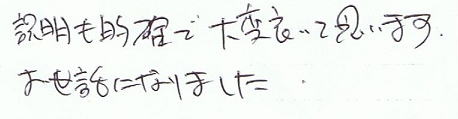 説明も的確で大変良いと思います.
お世話になりました